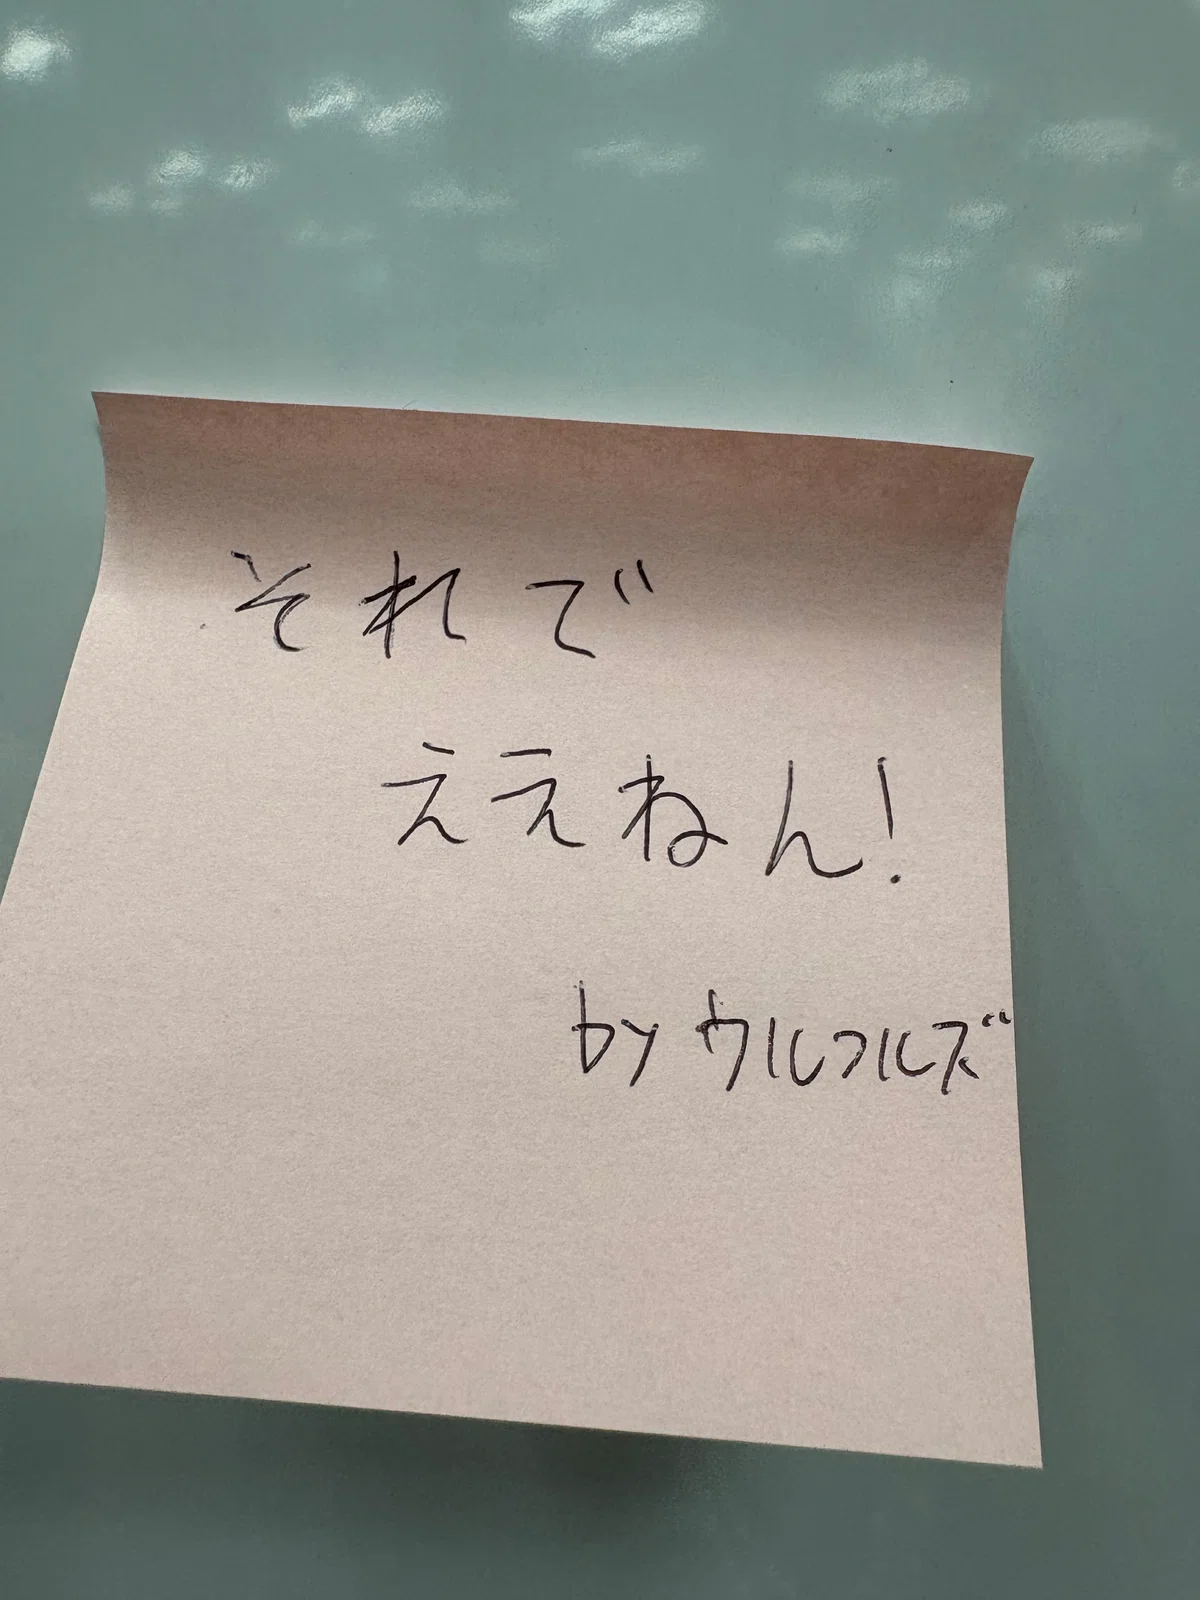 それで
ええねん!
by ウルフルズ